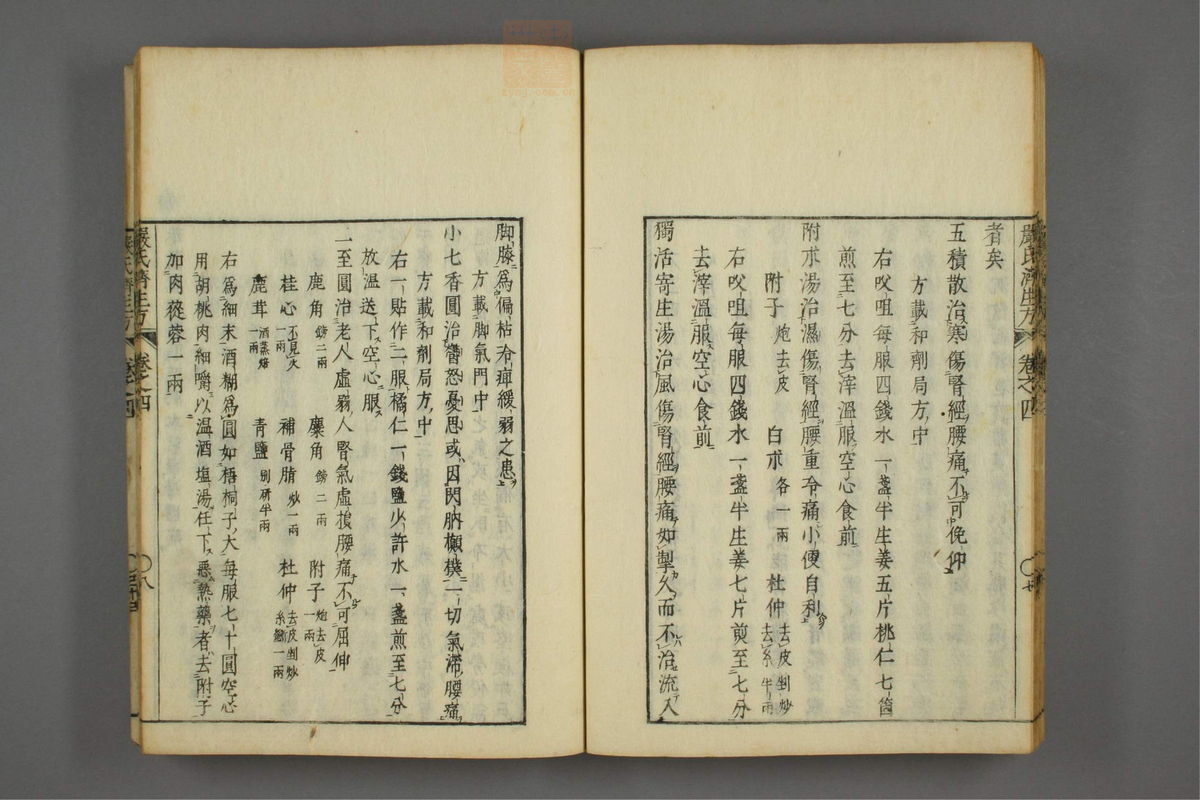 者矣
五積散治寒傷腎經腰痛不可俛仰
方載和劑局方中
右㕮咀每服四錢水一盞半生姜五片桃仁七箇
煎至七分去滓溫服空心食前
附朮湯治濕傷腎經腰重冷痛小便自利
附子炮去皮 白朮各一兩 杜仲去皮剉炒去糸半兩
右㕮咀每服四錢水一盞半生姜七片煎至七分
去滓溫服空心食前
獨活寄生湯治風傷腎經腰痛如掣久而不治流入
脚膝爲偏枯冷痺緩弱之患
方載脚氣門中
小七香圓治鬱怒憂思或因閃肭攧撲一切氣滯腰痛
方載和劑局方中
右一貼作二服橘仁一錢鹽少許水一盞煎至七分
放温送下空心服
二至圓治老人虛弱人腎氣虛損腰痛不可屈伸
鹿角鎊二兩 麋角鎊二兩 附子炮去皮一兩
桂心不見火一兩 補骨脂炒一兩 杜仲去皮剉炒糸絕一兩
鹿茸酒蒸焙一兩 青鹽別研半兩
右爲細末酒糊爲圓如梧桐子大每服七十圓空心
用胡桃肉細嚼以温酒塩湯任下惡熱藥者去附子
加肉蓯蓉一兩
嚴氏濟生方 卷之四 八